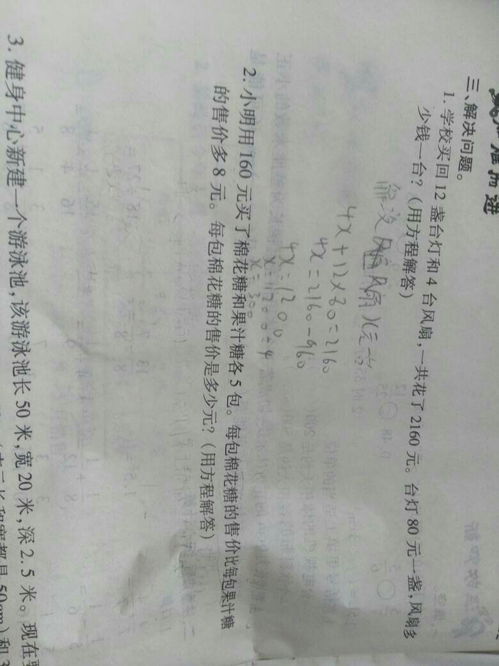 三、解决问题。
1. 学校买回 12 盏台灯和 4 台风扇,一共花了 2160 元。台灯 80 元一盏,风扇多
少钱一台?(用方程解答)
4x+12×80=2160
4x=2160-960
4x=1200
x=1200÷4
x=300
2. 小明用 160 元买了棉花糖和果汁糖各 5 包。每包棉花糖的售价比每包果汁糖
的售价多 8 元。每包棉花糖的售价是多少元?(用方程解答)
3. 健身中心新建一个游泳池,该游泳池长 50 米,宽 20 米,深 2.5 米。现在